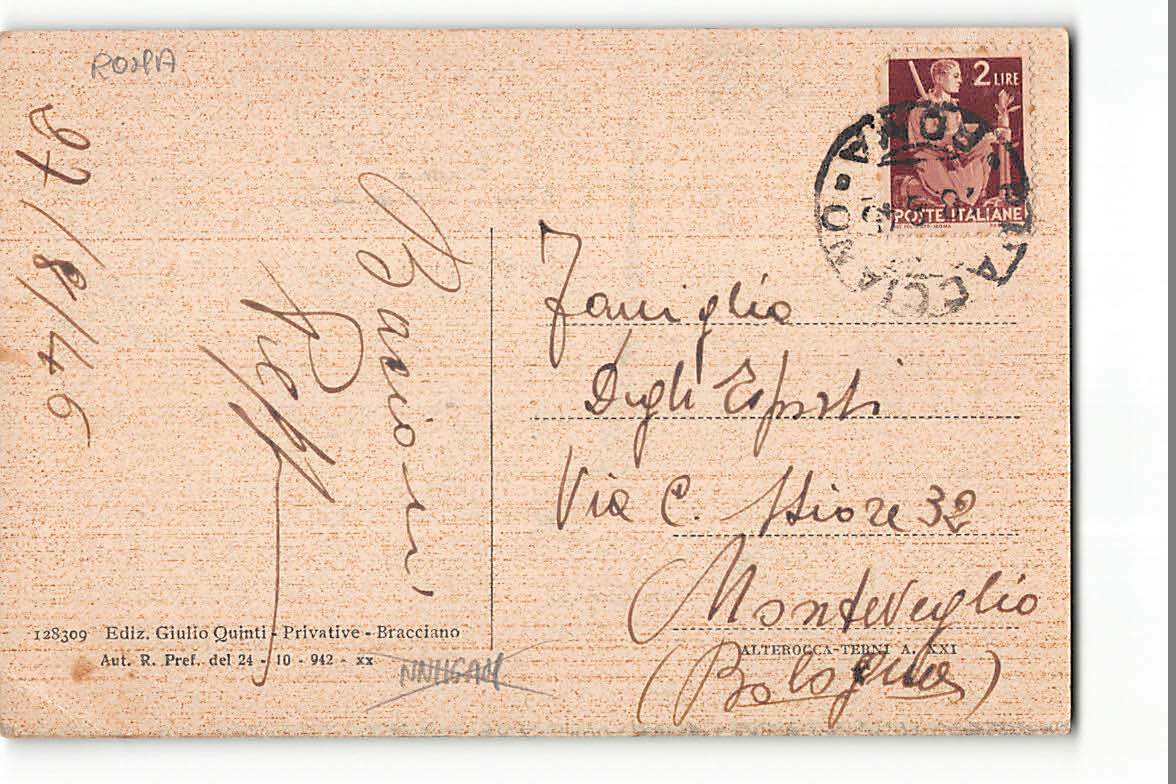 ROMA
27/8/46
Bacioni
Peppe
2 LIRE
POSTE ITALIANE
BRACCIANO • ROMA •
Famiglia
Degli Esposti
Via C. 32
Monteveglio
(Bologna)
128309 Ediz. Giulio Quinti - Privative - Bracciano
Aut. R. Pref. del 24 - 10 - 942 - XX
ALTEROCCA-TERNI A. XXI